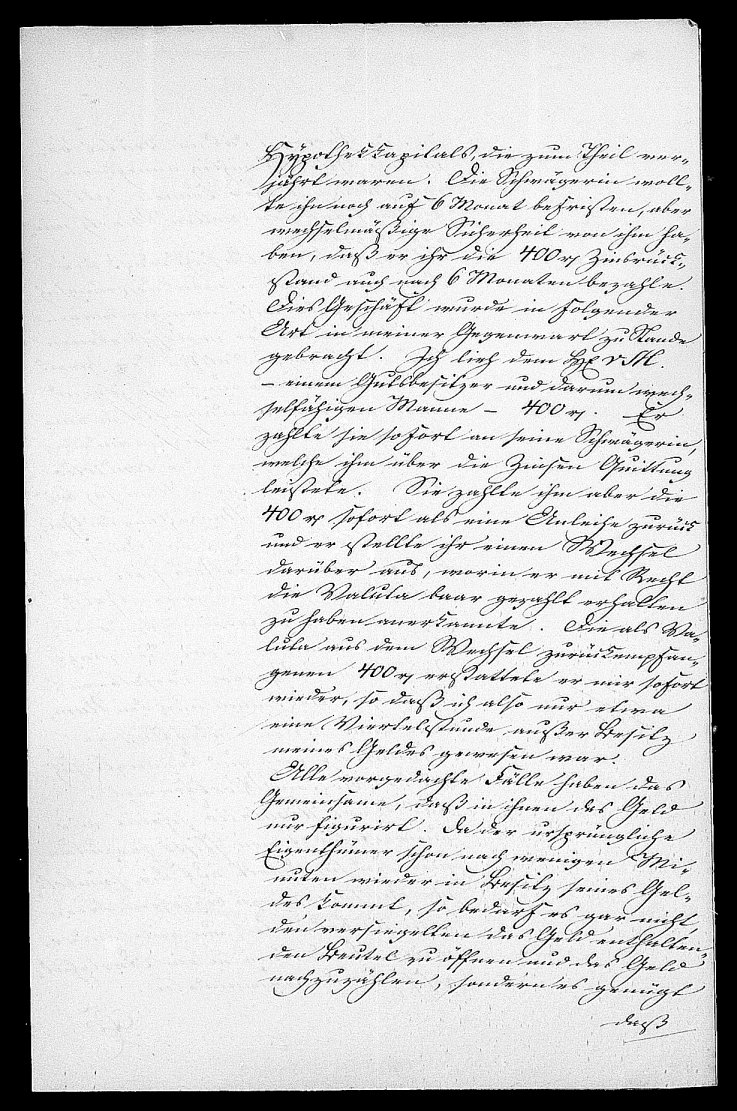 Hypothekkapitals, die zum Theil ver-
jährt waren. Die Schwägerin woll-
te ihn noch auf 6 Monat befristen, aber
wechselmäßige Sicherheit von ihm ha-
ben, daß er ihr die 400 rp Zinsrück-
stand auch nach 6 Monaten bezahle.
Dies Geschäft wurde in folgender
Art in meiner Gegenwart zu Stande
gebracht. Ich lieh dem H. v M.
– einem Gutsbesitzer und darum wech-
selfähigen Manne – 400 rp. Er
zahlte sie sofort an seine Schwägerin,
welche ihm über die Zinsen Quittung
leistete. Sie zahlte ihm aber die
400 rp sofort als eine Anleihe zurück
und er stellte ihr einen Wechsel
darüber aus, worin er mit Recht
die Valuta baar gezahlt erhalten
zu haben anerkannte. Die als Va-
luta aus dem Wechsel zurückempfan-
genen 400 rp erstattete er mir sofort
wieder, so daß ich also nur etwa
eine Viertelstunde außer Besitz
meines Geldes gewesen war.
Alle vorgedachte Fälle haben das
Gemeinsame, daß in ihnen das Geld
nur figurirt. Da der ursprüngliche
Eigenthümer schon nach wenigen Mi-
nuten wieder in Besitz seines Gel-
des kommt, so bedarf es gar nicht,
den versiegelten das Geld enthalten-
den Beutel zu öffnen und das Geld
nachzuzählen, sondern es genügt
daß